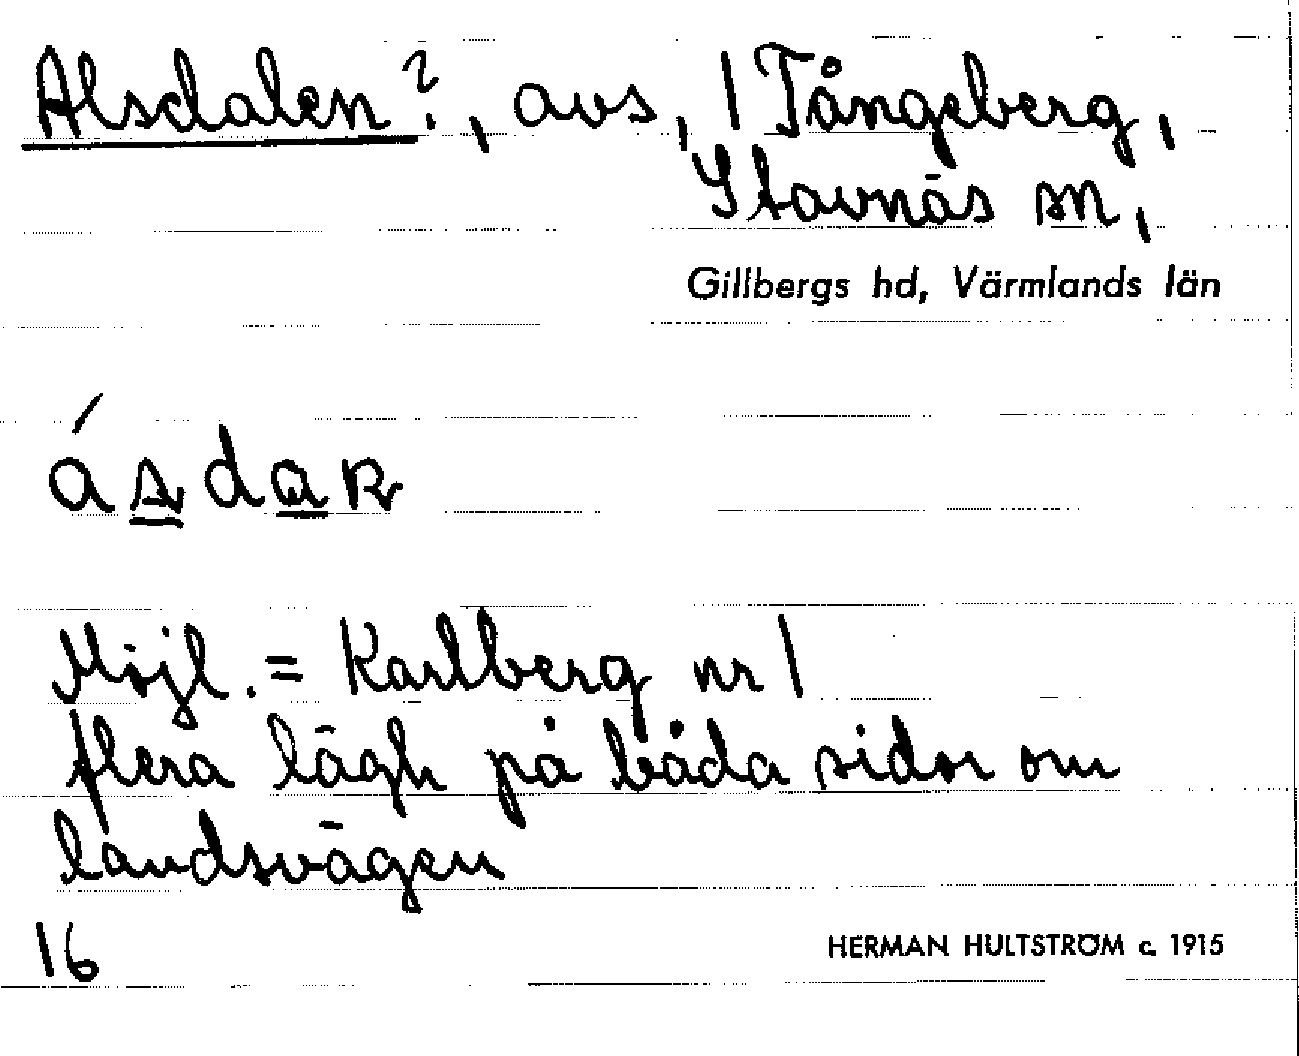 Alsdalen?, avs, 1 Tångeberg,
Stavnäs sn,
Gillbergs hd, Värmlands län
ásdaʀ
Möjl. = Karlberg nr 1
flera lägh på båda sidor om
landsvägen
16
HERMAN HULTSTRÖM c. 1915